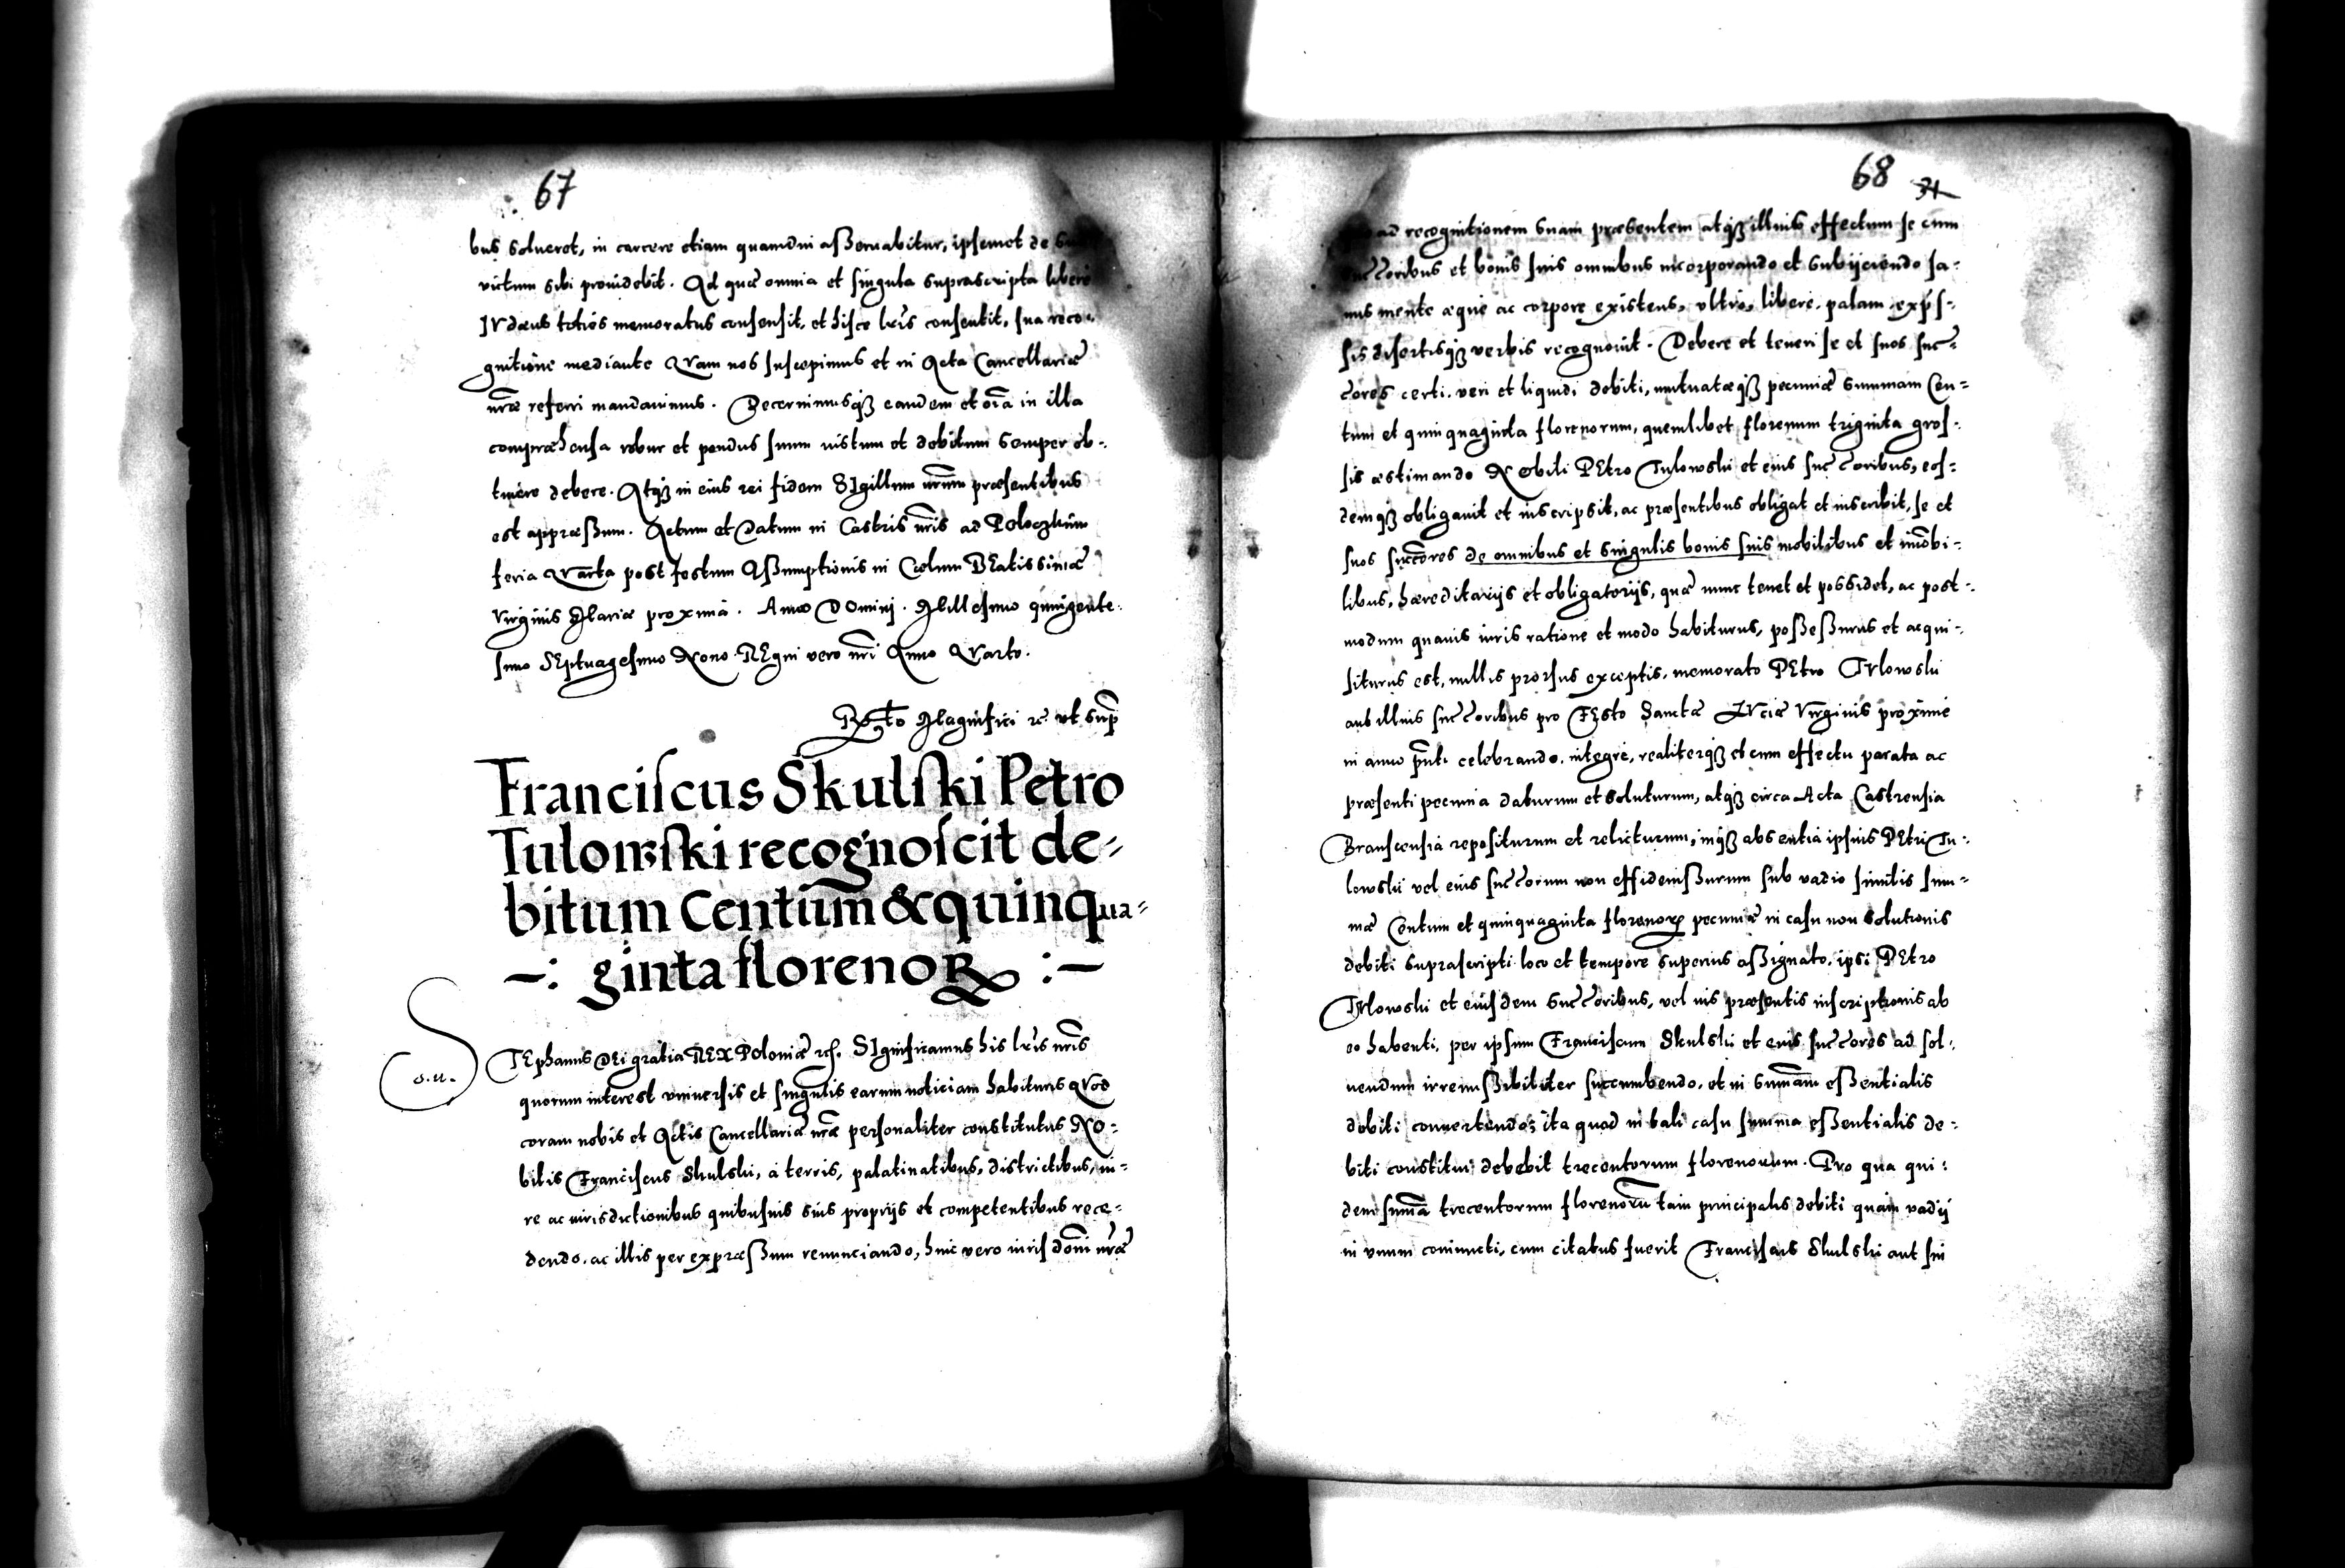 67
bus solueret, in carcere etiam quamdiu asseruabitur, ipsemet de
victum sibi prouidebit. Ad quæ omnia et singula suprascripta libere
IVdæus toties memoratus consensit, et hisce lr̃is consentit, sua reco-
gnitione mediante QVam nos suscepimus et in Acta Cancellariæ
nr̃æ referri mandauimus. Decernimusq; eandem et oĩa in illa
compræhensa robur et pondus suum iustum et debitum semper ob-
tinere debere. Atq; in eius rei fidem SIgillum nr̃um præsentibus
est appræssum. Actum et Datum in Castris nr̃is ad Poloczkum
feria QVarta post festum Assumptionis in Cœlum BEatissimæ
Virginis Mariæ proxima. Anno DOmini. Millesimo quingente-
simo SEptuagesimo Nono. REgni vero nr̃i Anno QVarto.
Magnifici rc̃ vt supr̃
Franciscus Skulski Petro
Tulowski recognoscit de-
bitum Centum̃ & quinqua-
-: ginta florenoꝝ :-
S
o.u.
TEphanus DEi gratia REX Poloniæ rc̃. SIgnificamus his lr̃is nr̃is
quorum interest vniuersis et singulis earum noticiam habituris QVod
coram nobis et Actis Cancellariæ nr̃æ personaliter constitutus NO-
bilis Franciscus Skulski, a terris, palatinatibus, districtibus, iu-
re ac iurisdictionibus quibusuis suis proprijs et competentibus rece-
dendo, ac illis per expræssum renunciando, huic vero iurisdōni nr̃æ
68
31
ad recognitionem suam præsentem atq; illius effectum se cum
succ̃oribus et bonis suis omnibus incorporando et subijciendo sa-
nus mente æque ac corpore existens, vltro, libere, palam, exp̃s-
sis disertisq; verbis recognouit. Debere et teneri se et suos suc̃-
c̃ores certi, veri et liquidi debiti, mutuatæq; pecuniæ summam Cen-
tum et quinquaginta florenorum, quemlibet florenum triginta gros-
sis æstimando NObili PEtro Tulowski et eius succ̃oribus, eos-
demq; obligauit et inscripsit, ac præsentibus obligat et inscribit, se et
suos succ̃ores de omnibus et singulis bonis suis mobilibus et im̃obi-
libus, hæreditarijs et obligatorijs, quæ nunc tenet et possidet, ac post-
modum quauis iuris ratione et modo habiturus, possessurus et acqui-
siturus est, nullis prorsus exceptis, memorato PEtro TVlowski
aut illius succ̃oribus pro FEsto Sanctæ LVciæ Virginis proxime
in anno p̃nti celebrando, integre, realiterq; et cum effectu parata ac
præsenti pecunia daturum et soluturum, atq; circa Acta Castrensia
Branscensia repositurum et relicturum, inq; absentia ipsius PEtri Tu-
lowski vel eius succ̃orum non effidemissurum sub vadio similis sum-
mæ Centum et quinquaginta florenoꝝ pecuniæ in casu non solutionis
debiti suprascripti loco et tempore superius assignato, ipsi PEtro
TVlowski et eiusdem succ̃oribus, vel ius præsentis inscriptionis ab
eo habenti, per ipsum Franciscum Skulski et eius succ̃ores ad sol-
uendum irremissibiliter succumbendo, et in sum̃am essentialis
debiti conuertendo; ita quod in tali casu summa essentialis de-
biti constitui debebit trecentorum florenorum. Pro qua qui-
dem sum̃a trecentorum florenorũ tam principalis debiti quam vadij
in vnum coniuncti, cum citatus fuerit Franciscus Skulski aut sui